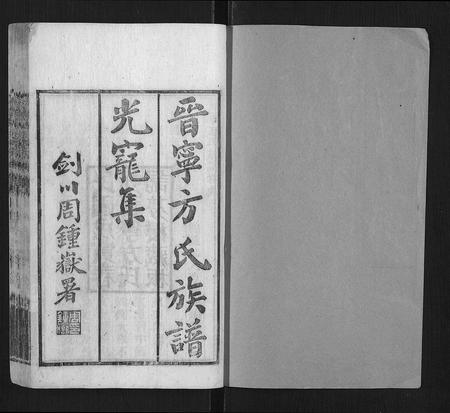 晉寧方氏族譜
光寵集
劍川周鍾嶽署